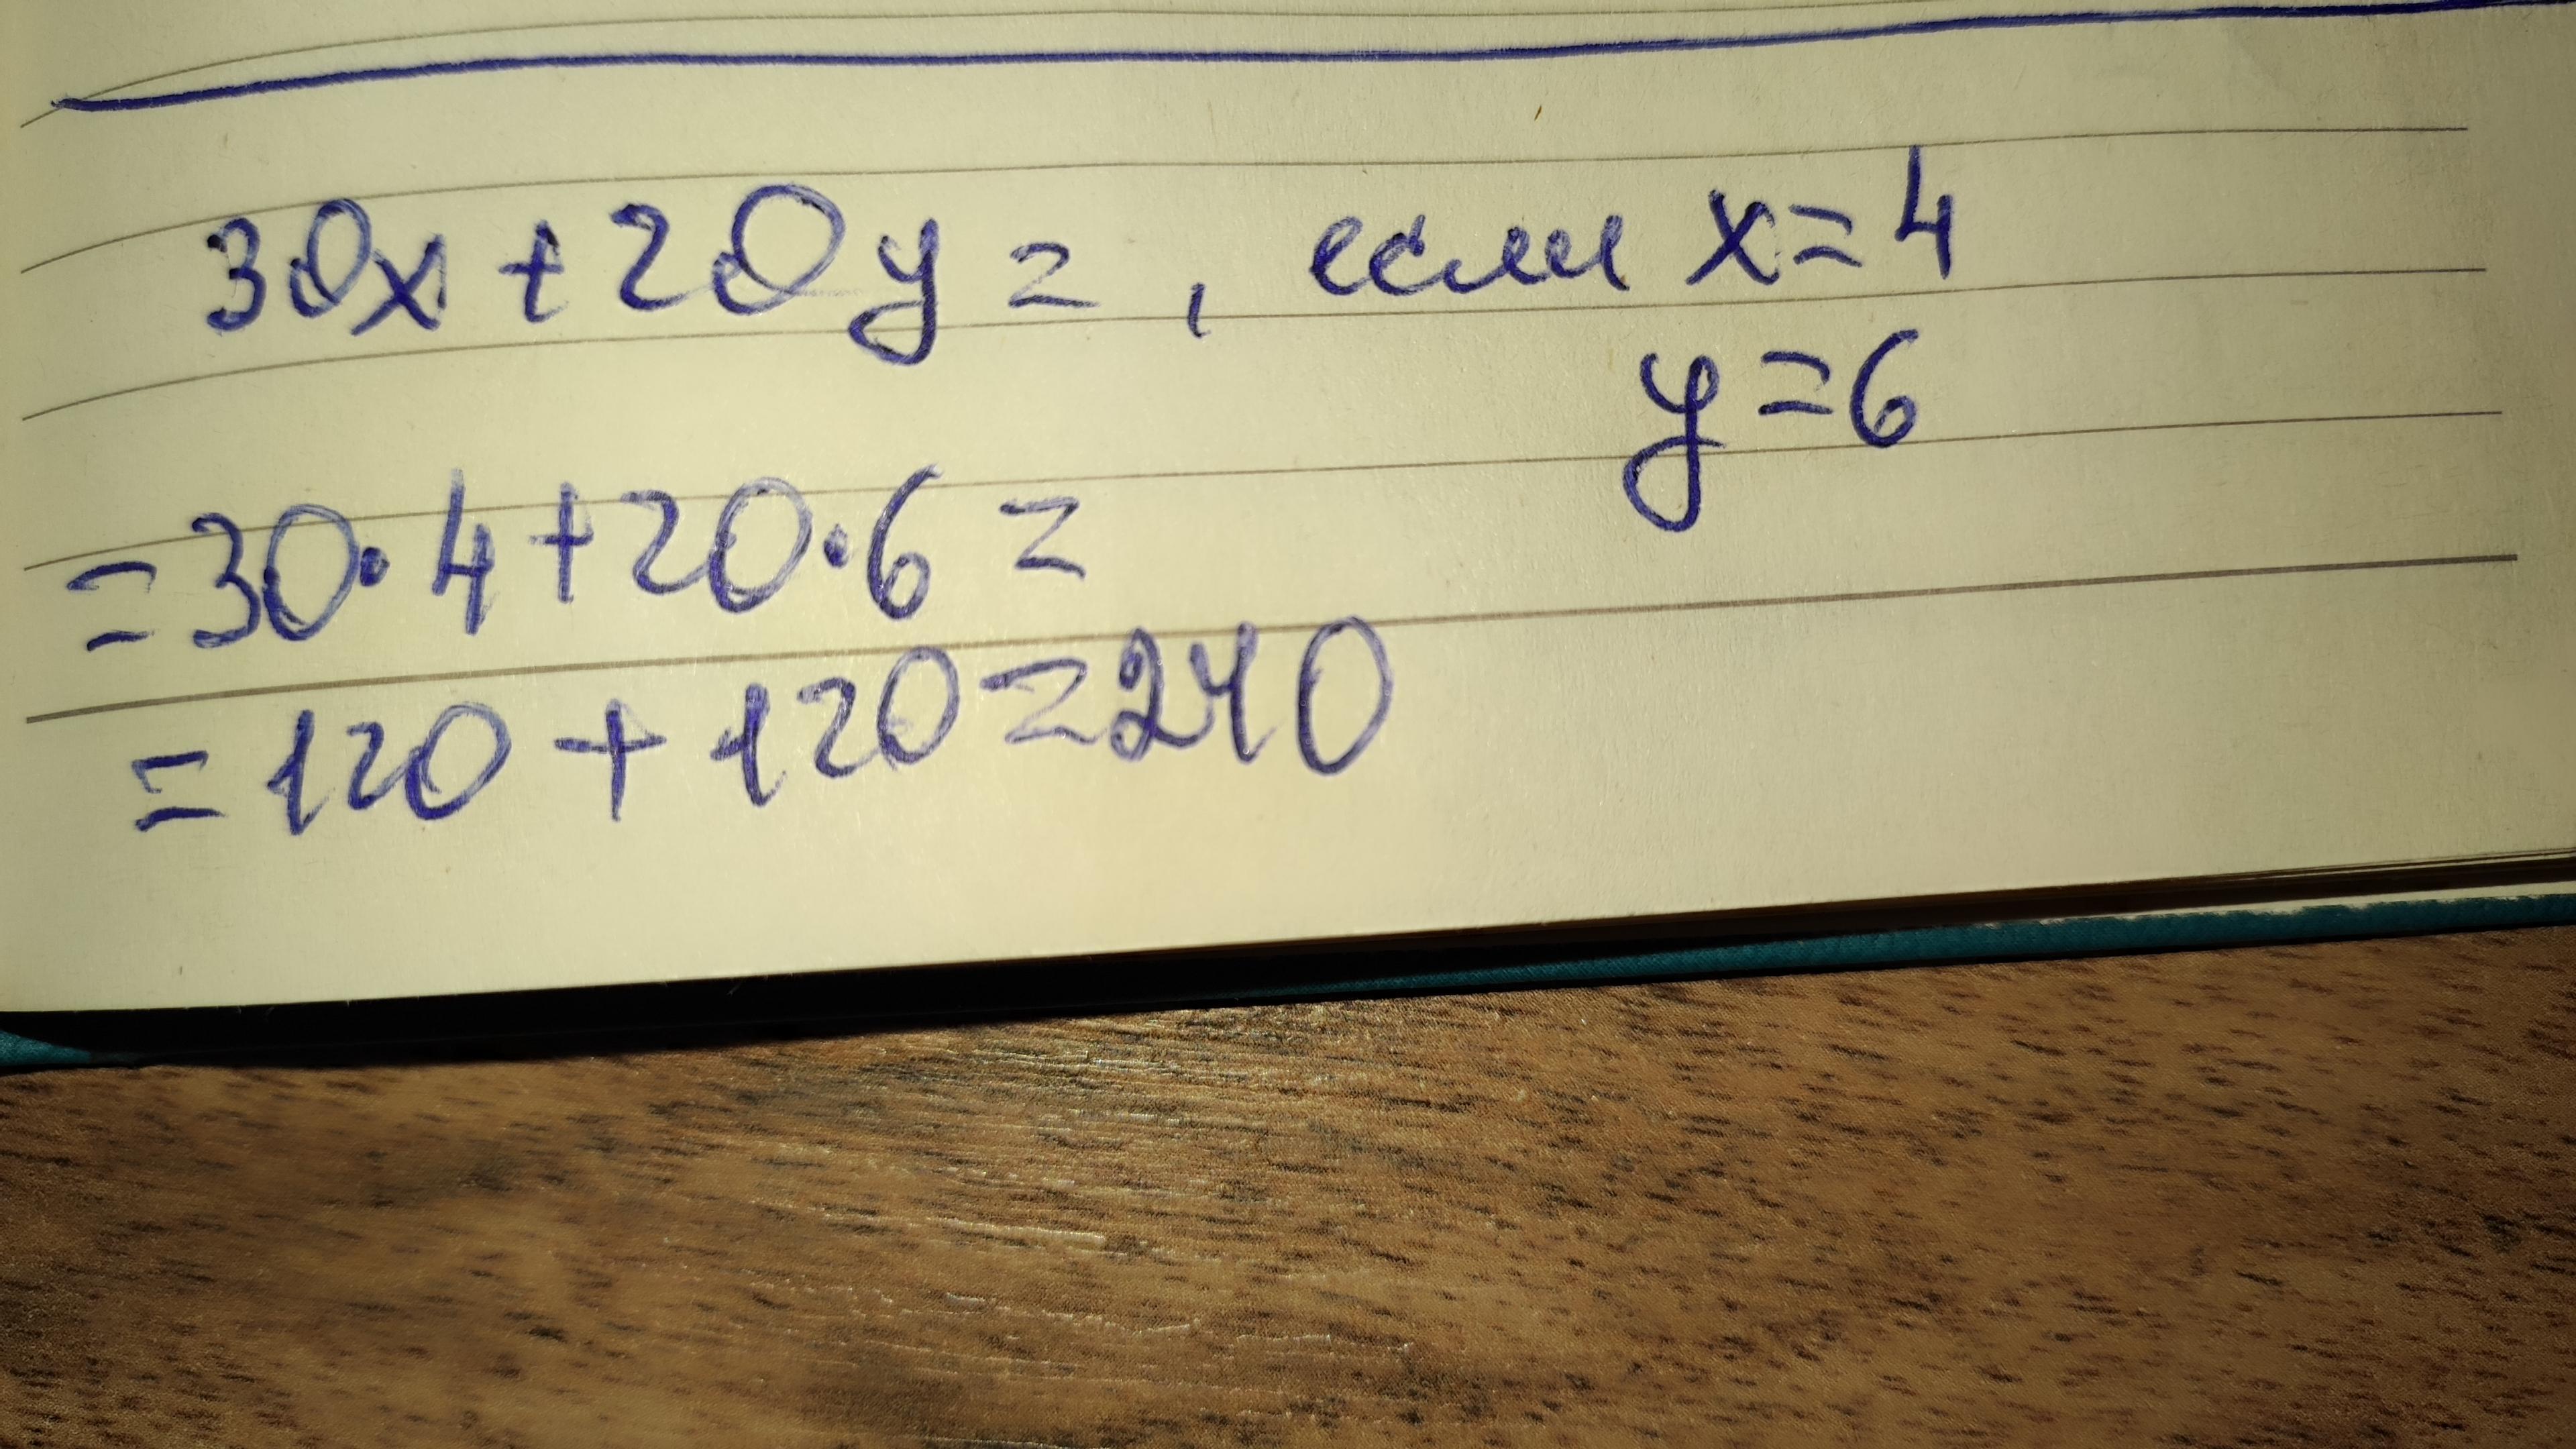 30x + 20y = , если x = 4
y = 6
= 30 · 4 + 20 · 6 =
= 120 + 120 = 240